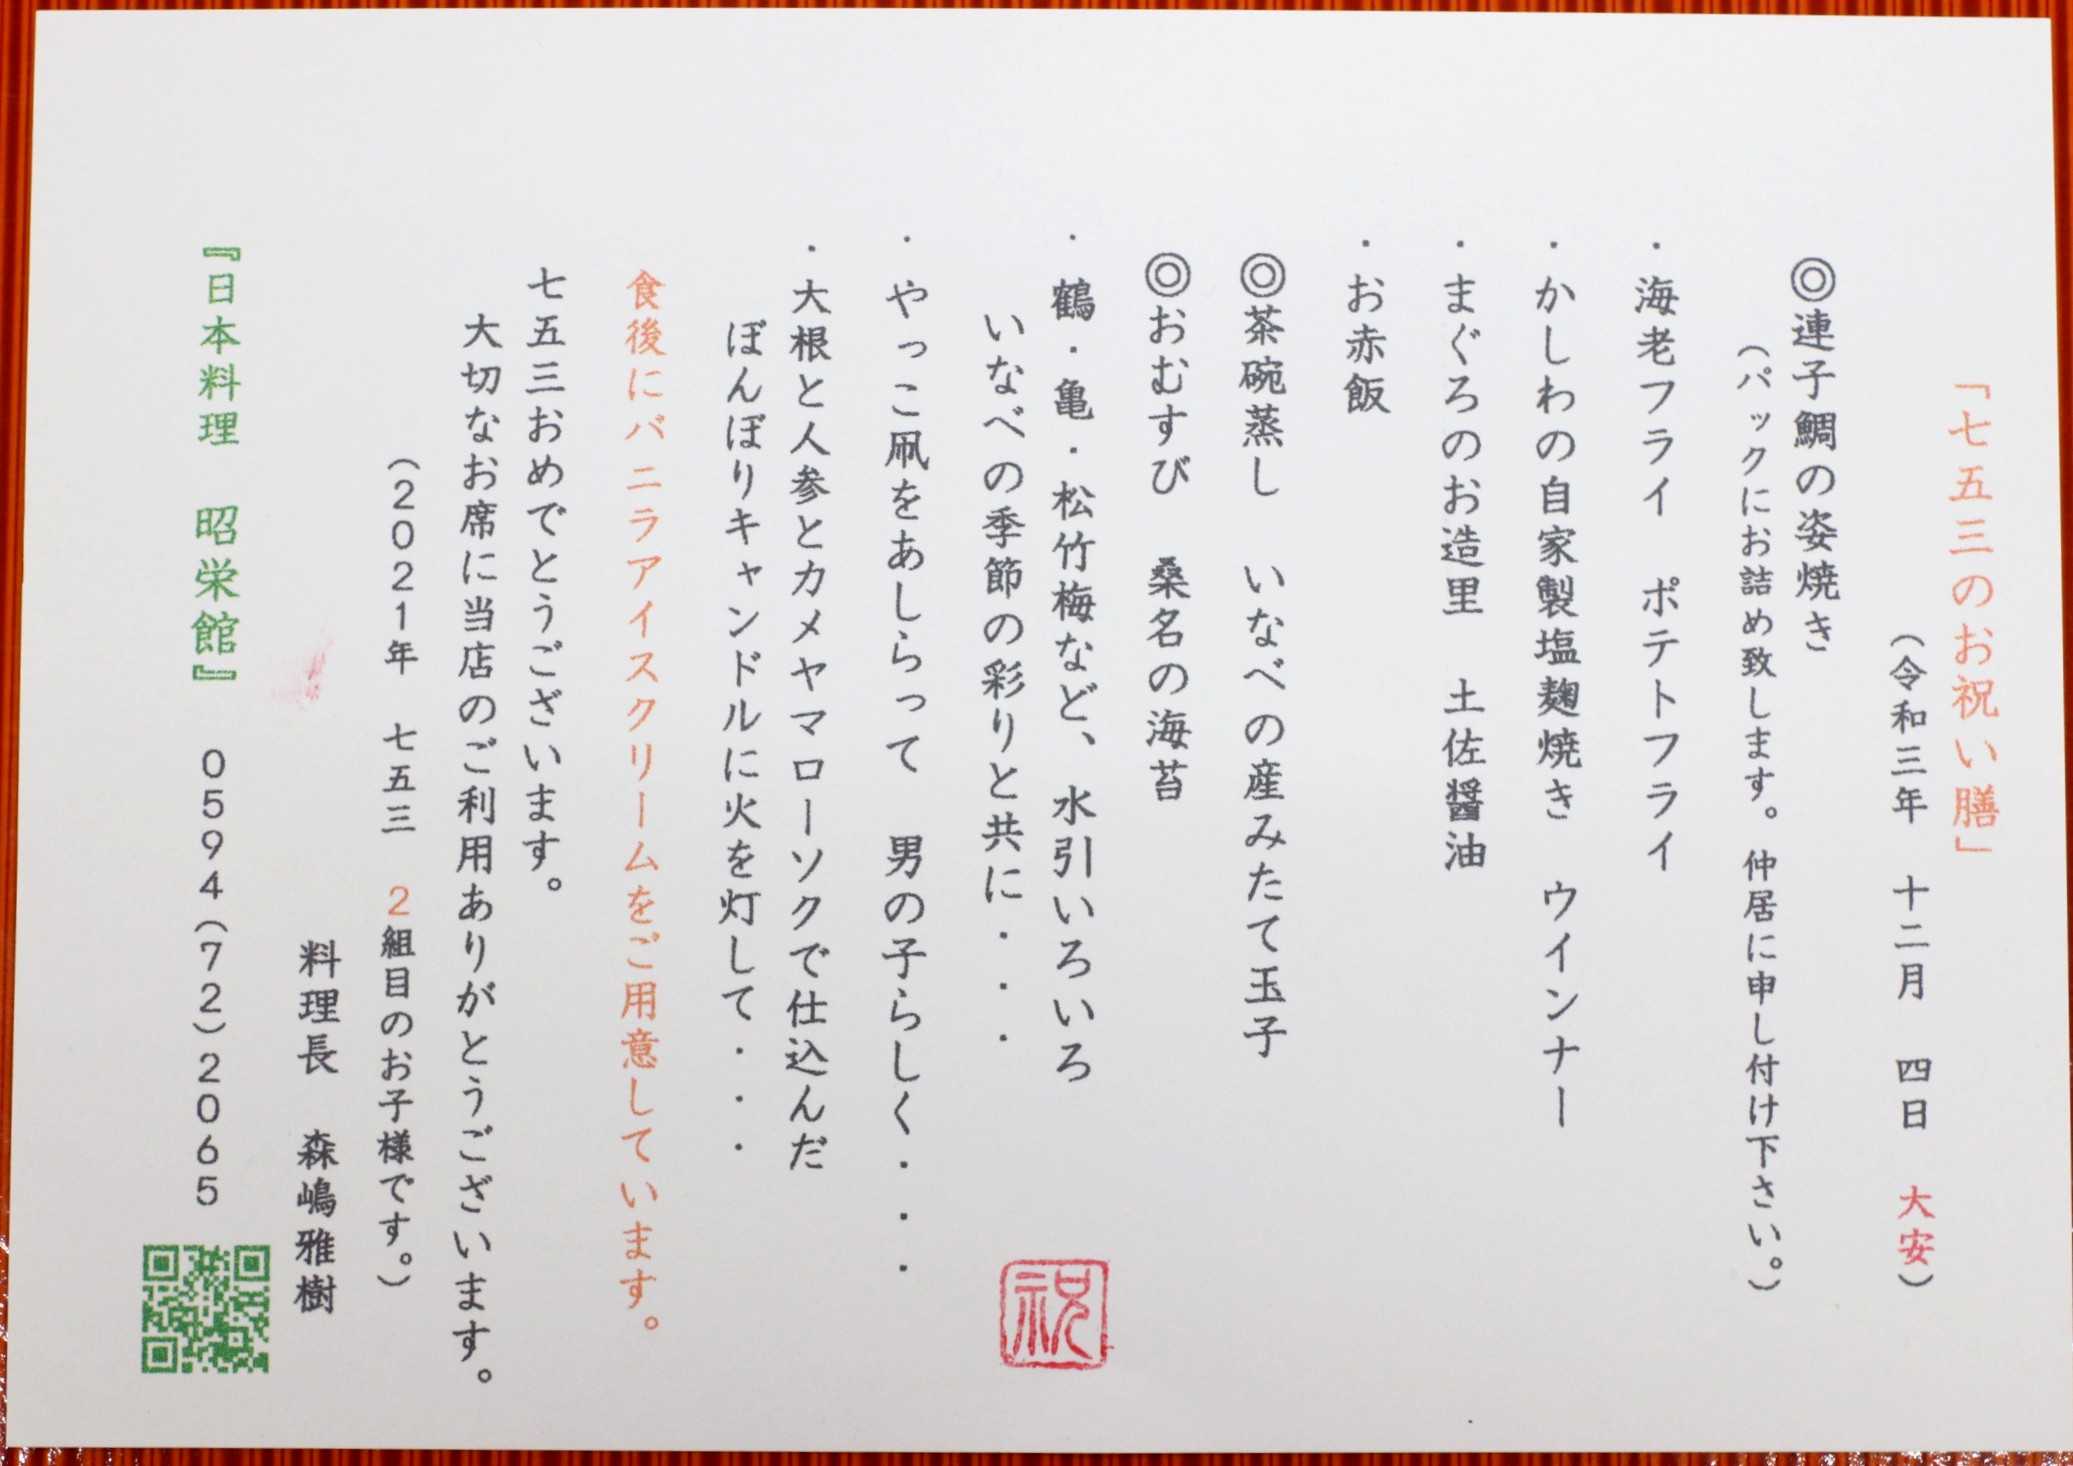 「七五三のお祝い膳」
（令和三年　十二月　四日　大安）
◎連子鯛の姿焼き
（パックにお詰め致します。仲居に申し付け下さい。）
・海老フライ　ポテトフライ
・かしわの自家製塩麹焼き　ウインナー
・まぐろのお造里　土佐醤油
・お赤飯
◎茶碗蒸し　いなべの産みたて玉子
◎おむすび　桑名の海苔
・鶴・亀・松竹梅など、水引いろいろ
いなべの季節の彩りと共に・・・
祝
・やっこ凧をあしらって　男の子らしく・・・
・大根と人参とカメヤマローソクで仕込んだ
ぼんぼりキャンドルに火を灯して・・・
食後にバニラアイスクリームをご用意しています。
七五三おめでとうございます。
大切なお席に当店のご利用ありがとうございます。
（2021年　七五三　2組目のお子様です。）
料理長　森嶋雅樹
『日本料理　昭栄館』　0594(72)2065